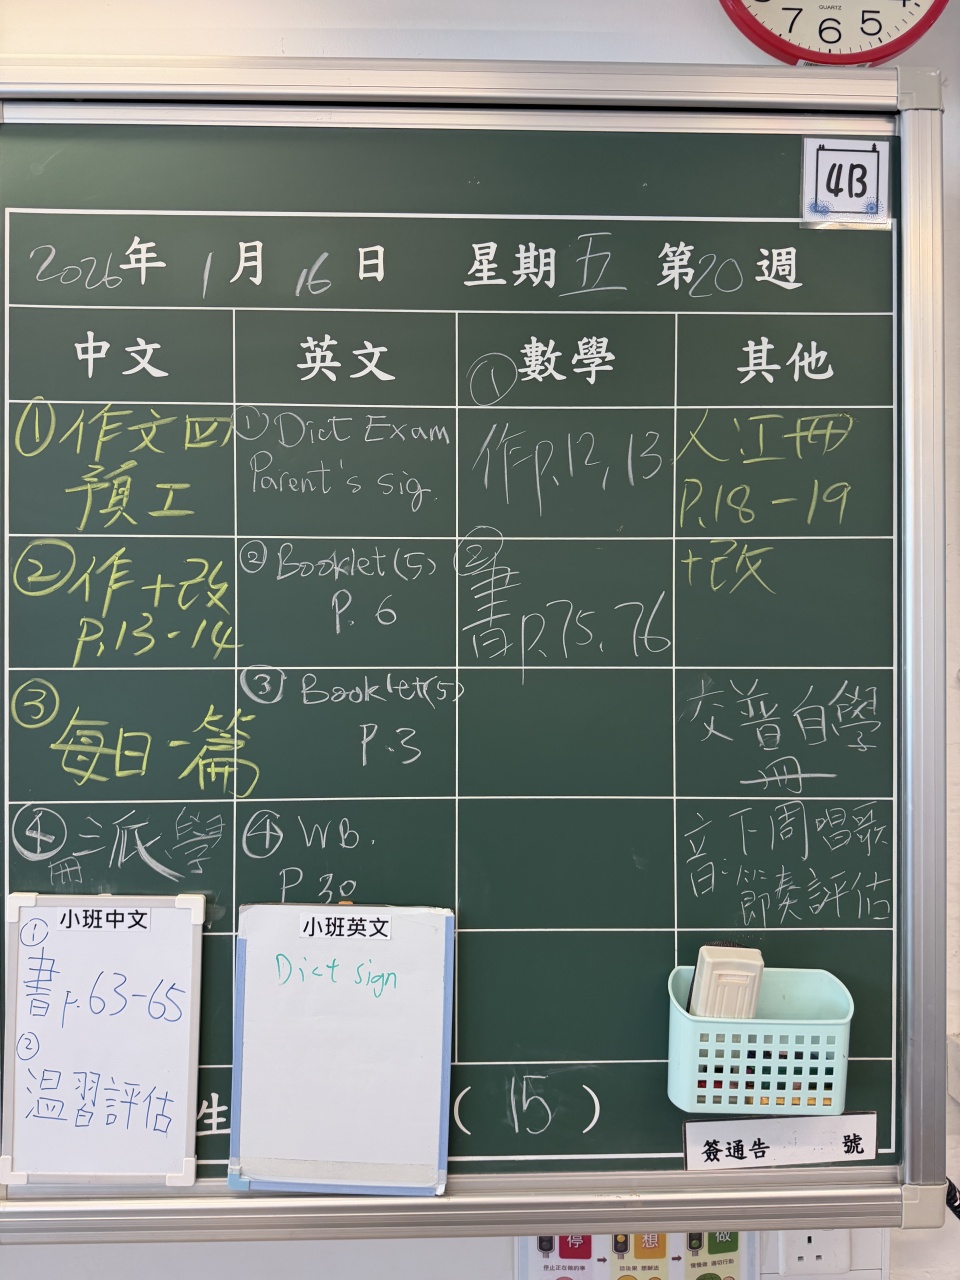 7 6 5
QUARTZ
4B
2026年 1月 16日 星期五 第20週
中文 英文 ①數學 其他
①作文四
預工
②作+改
P.13-14
③
每日一篇
④三派學
冊
① Dict Exam
Parent's sig.
② Booklet(5)
P. 6
③ Booklet(5)
P.3
④ WB.
P 30
作p.12, 13
②
書p.75, 76
人江冊
P.18-19
+改
交普自學
冊
音:下周唱歌
節奏評估
小班中文
①
書 p.63-65
②
温習評估
小班英文
Dict sign
生
( 15 )
簽通告 號
停
想
做